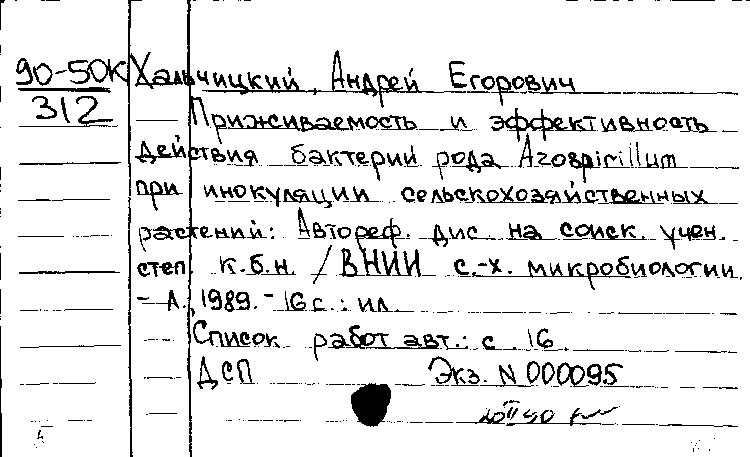 90-50К Хальчицкий, Андрей Егорович
312
Приживаемость и эффективность
действия бактерий рода Azospirillum
при инокуляции сельскохозяйственных
растений: Автореф. дис. на соиск. учен.
степ к.б.н. / ВНИИ с.-х. микробиологии.
- Л., 1989. - 16 с.: ил.
Список работ авт.: с. 16.
ДСП Экз. N 000095